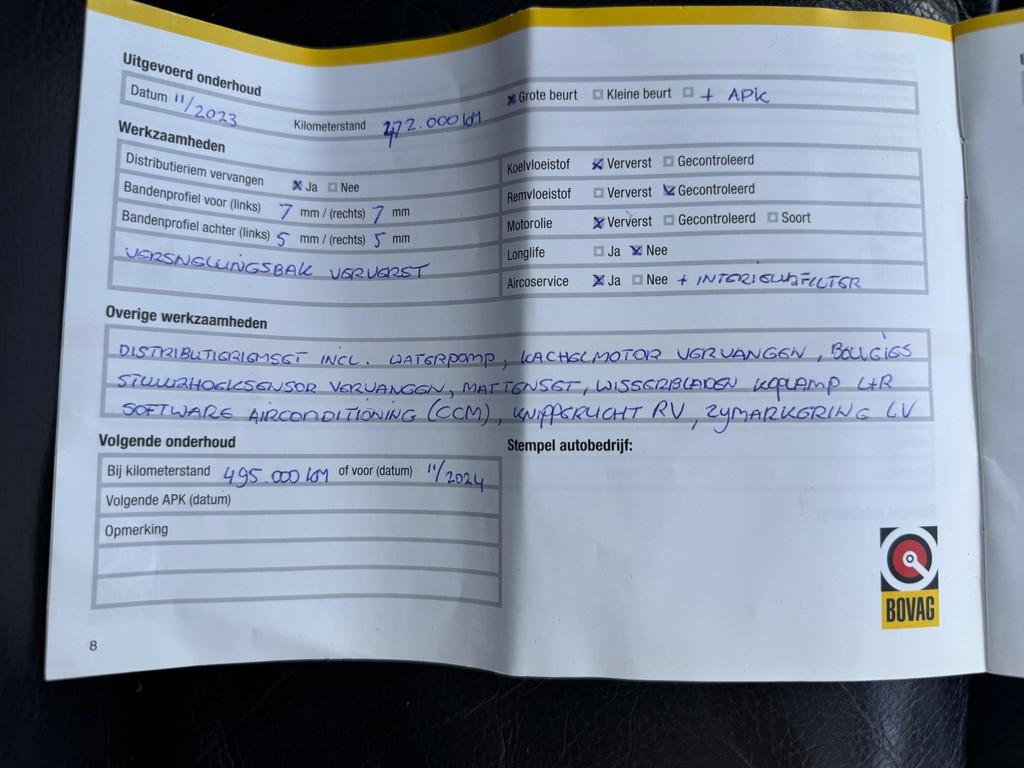 Uitgevoerd onderhoud
Datum 11/2023 Kilometerstand 472.000 KM
Grote beurt Kleine beurt + APK
Werkzaamheden
Distributieriem vervangen Ja Nee
Bandenprofiel voor (links) 7 mm / (rechts) 7 mm
Bandenprofiel achter (links) 5 mm / (rechts) 5 mm
VERSNELLINGSBAK VERVERST
Koelvloeistof Ververst Gecontroleerd
Remvloeistof Ververst Gecontroleerd
Motorolie Ververst Gecontroleerd Soort
Longlife Ja Nee
Aircoservice Ja Nee + INTERIEURFILTER
Overige werkzaamheden
DISTRIBUTIERIEMSET INCL. WATERPOMP, KACHELMOTOR VERVANGEN, BOUGIES
STUURHOEKSENSOR VERVANGEN, MATTENSET, WISSERBLADEN KOPLAMP L+R
SOFTWARE AIRCONDITIONING (CCM), KNIPPERLICHT RV, ZYMARKERING LV
Volgende onderhoud
Bij kilometerstand 495.000 KM of voor (datum) 11/2024
Volgende APK (datum)
Opmerking
Stempel autobedrijf:
BOVAG
8